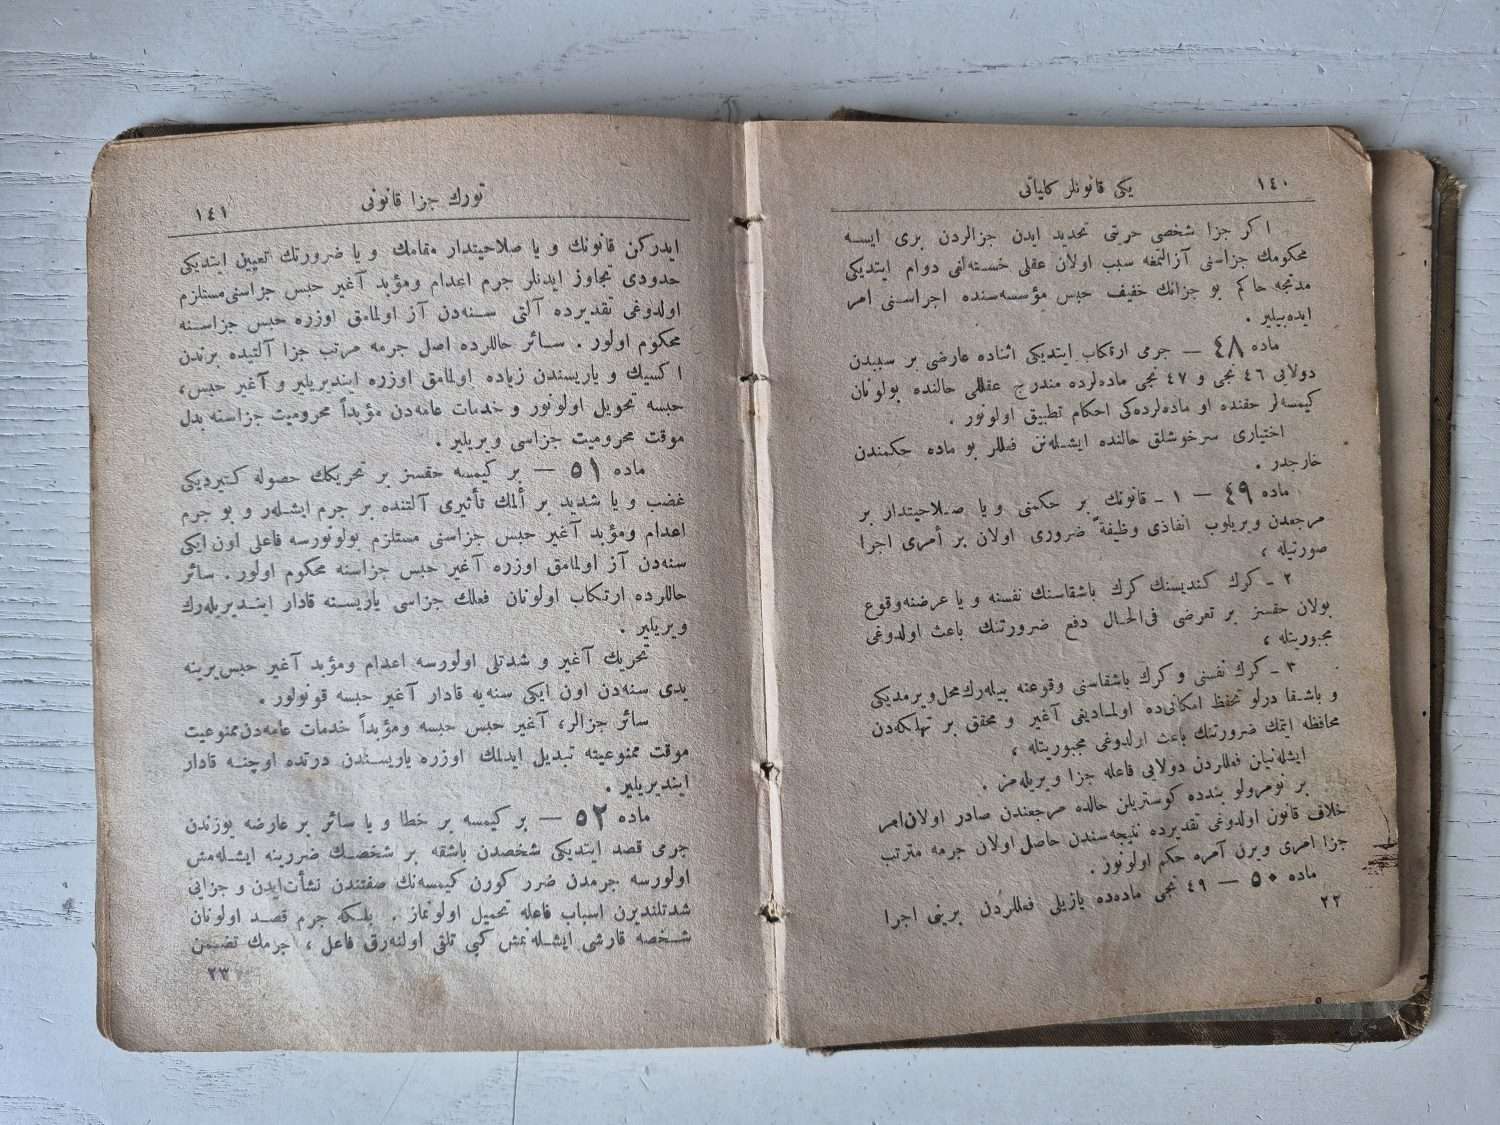 ١٤٠
يكى قانونلر كلياتى
اكر جزا شخصى حريتى تحديد ايدن جزالردن برى ايسه
محكومك جزاسنى آزالتمغه سبب اولان عقلى خسته‌لغى دوام ايتديكى
مدتجه حاكم بو جزانك خفيف حبس مؤسسه‌سنده اجراسنى امر
ايده‌بيلير .
ماده ٤٨ — جرمى ارتكاب ايتديكى اثناده عارضى بر سببدن
دولايى ٤٦ نجى و ٤٧ نجى ماده‌لرده مندرج عقللى حالنده بولونان
كيمسه‌لر حقنده او ماده‌لرده‌كى احكام تطبيق اولونور .
اختيارى سرخوشلق حالنده ايشله‌نن فعللر بو ماده حكمندن
خارجدر .
ماده ٤٩ — ١ ـ قانونك بر حكمنى ويا صلاحيتدار بر
مرجعدن ويريلوب انفاذى وظيفةً ضرورى اولان بر أمرى اجرا
صورتيله ،
٢ ـ كرك كنديسنك كرك باشقاسنك نفسنه ويا عرضنه وقوع
بولان حقسز بر تعرضى فى‌الحال دفع ضرورتنك باعث اولدوغى
مجبوريتله ،
٣ ـ كرك نفسنى و كرك باشقاسنى وقوعنه بيله‌رك محل ويرمديكى
و باشقا درلو تحفظ امكانى‌ده اولماديغى آغير و محقق بر تهلكه‌دن
محافظه ايتمك ضرورتنك باعث اولدوغى مجبوريتله ،
ايشله‌نيلن فعللردن دولايى فاعله جزا ويريله‌مز .
بر نومرولو بندده كوستريلن حالده مرجعندن صادر اولان امر
خلاف قانون اولدوغى تقديرده نتيجه‌سندن حاصل اولان جرمه مترتب
جزا امرى ويرن آمره حكم اولونور .
ماده ٥٠ — ٤٩ نجى ماده‌ده يازيلى فعللردن برينى اجرا
٢٢
تورك جزا قانونى
١٤١
ايدركن قانونك ويا صلاحيتدار مقامك ويا ضرورتك تعيين ايتديكى
حدودى تجاوز ايدنلر جرم اعدام ومؤبد آغير حبس جزاسنى مستلزم
اولدوغى تقديرده آلتى سنه‌دن آز اولمامق اوزره حبس جزاسنه
محكوم اولور . سائر حاللرده اصل جرمه مرتب جزا آلتيده برندن
اكسيك و ياريسندن زياده اولمامق اوزره اينديريلير و آغير حبس،
حبسه تحويل اولونور و خدمات عامه‌دن مؤبداً محروميت جزاسنه بدل
موقت محروميت جزاسى ويريلير .
ماده ٥١ — بر كيمسه حقسز بر تحريكك حصوله كتيرديكى
غضب ويا شديد بر ألمك تأثيرى آلتنده بر جرم ايشلر و بو جرم
اعدام ومؤبد آغير حبس جزاسنى مستلزم بولونورسه فاعلى اون ايكى
سنه‌دن آز اولمامق اوزره آغير حبس جزاسنه محكوم اولور . سائر
حاللرده ارتكاب اولونان فعلك جزاسى ياريسنه قادار اينديريله‌رك
ويريلير .
تحريك آغير و شدتلى اولورسه اعدام ومؤبد آغير حبس يرينه
يدى سنه‌دن اون ايكى سنه‌يه قادار آغير حبسه قونولور .
سائر جزالر، آغير حبس حبسه ومؤبداً خدمات عامه‌دن ممنوعيت
موقت ممنوعيته تبديل ايدلمك اوزره ياريسندن درتده اوچنه قادار
اينديريلير .
ماده ٥٢ — بر كيمسه بر خطا ويا سائر بر عارضه يوزندن
جرمى قصد ايتديكى شخصدن باشقه بر شخصك ضررينه ايشله‌مش
اولورسه جرمدن ضرر كورن كيمسه‌نك صفتندن نشأت‌ايدن و جزايى
شدتلنديرن اسباب فاعله تحميل اولونماز . بلكه جرم قصد اولونان
شخصه قارشى ايشله‌نمش كبى تلقى اولنه‌رق فاعل ، جرمك تضمن
٢٣